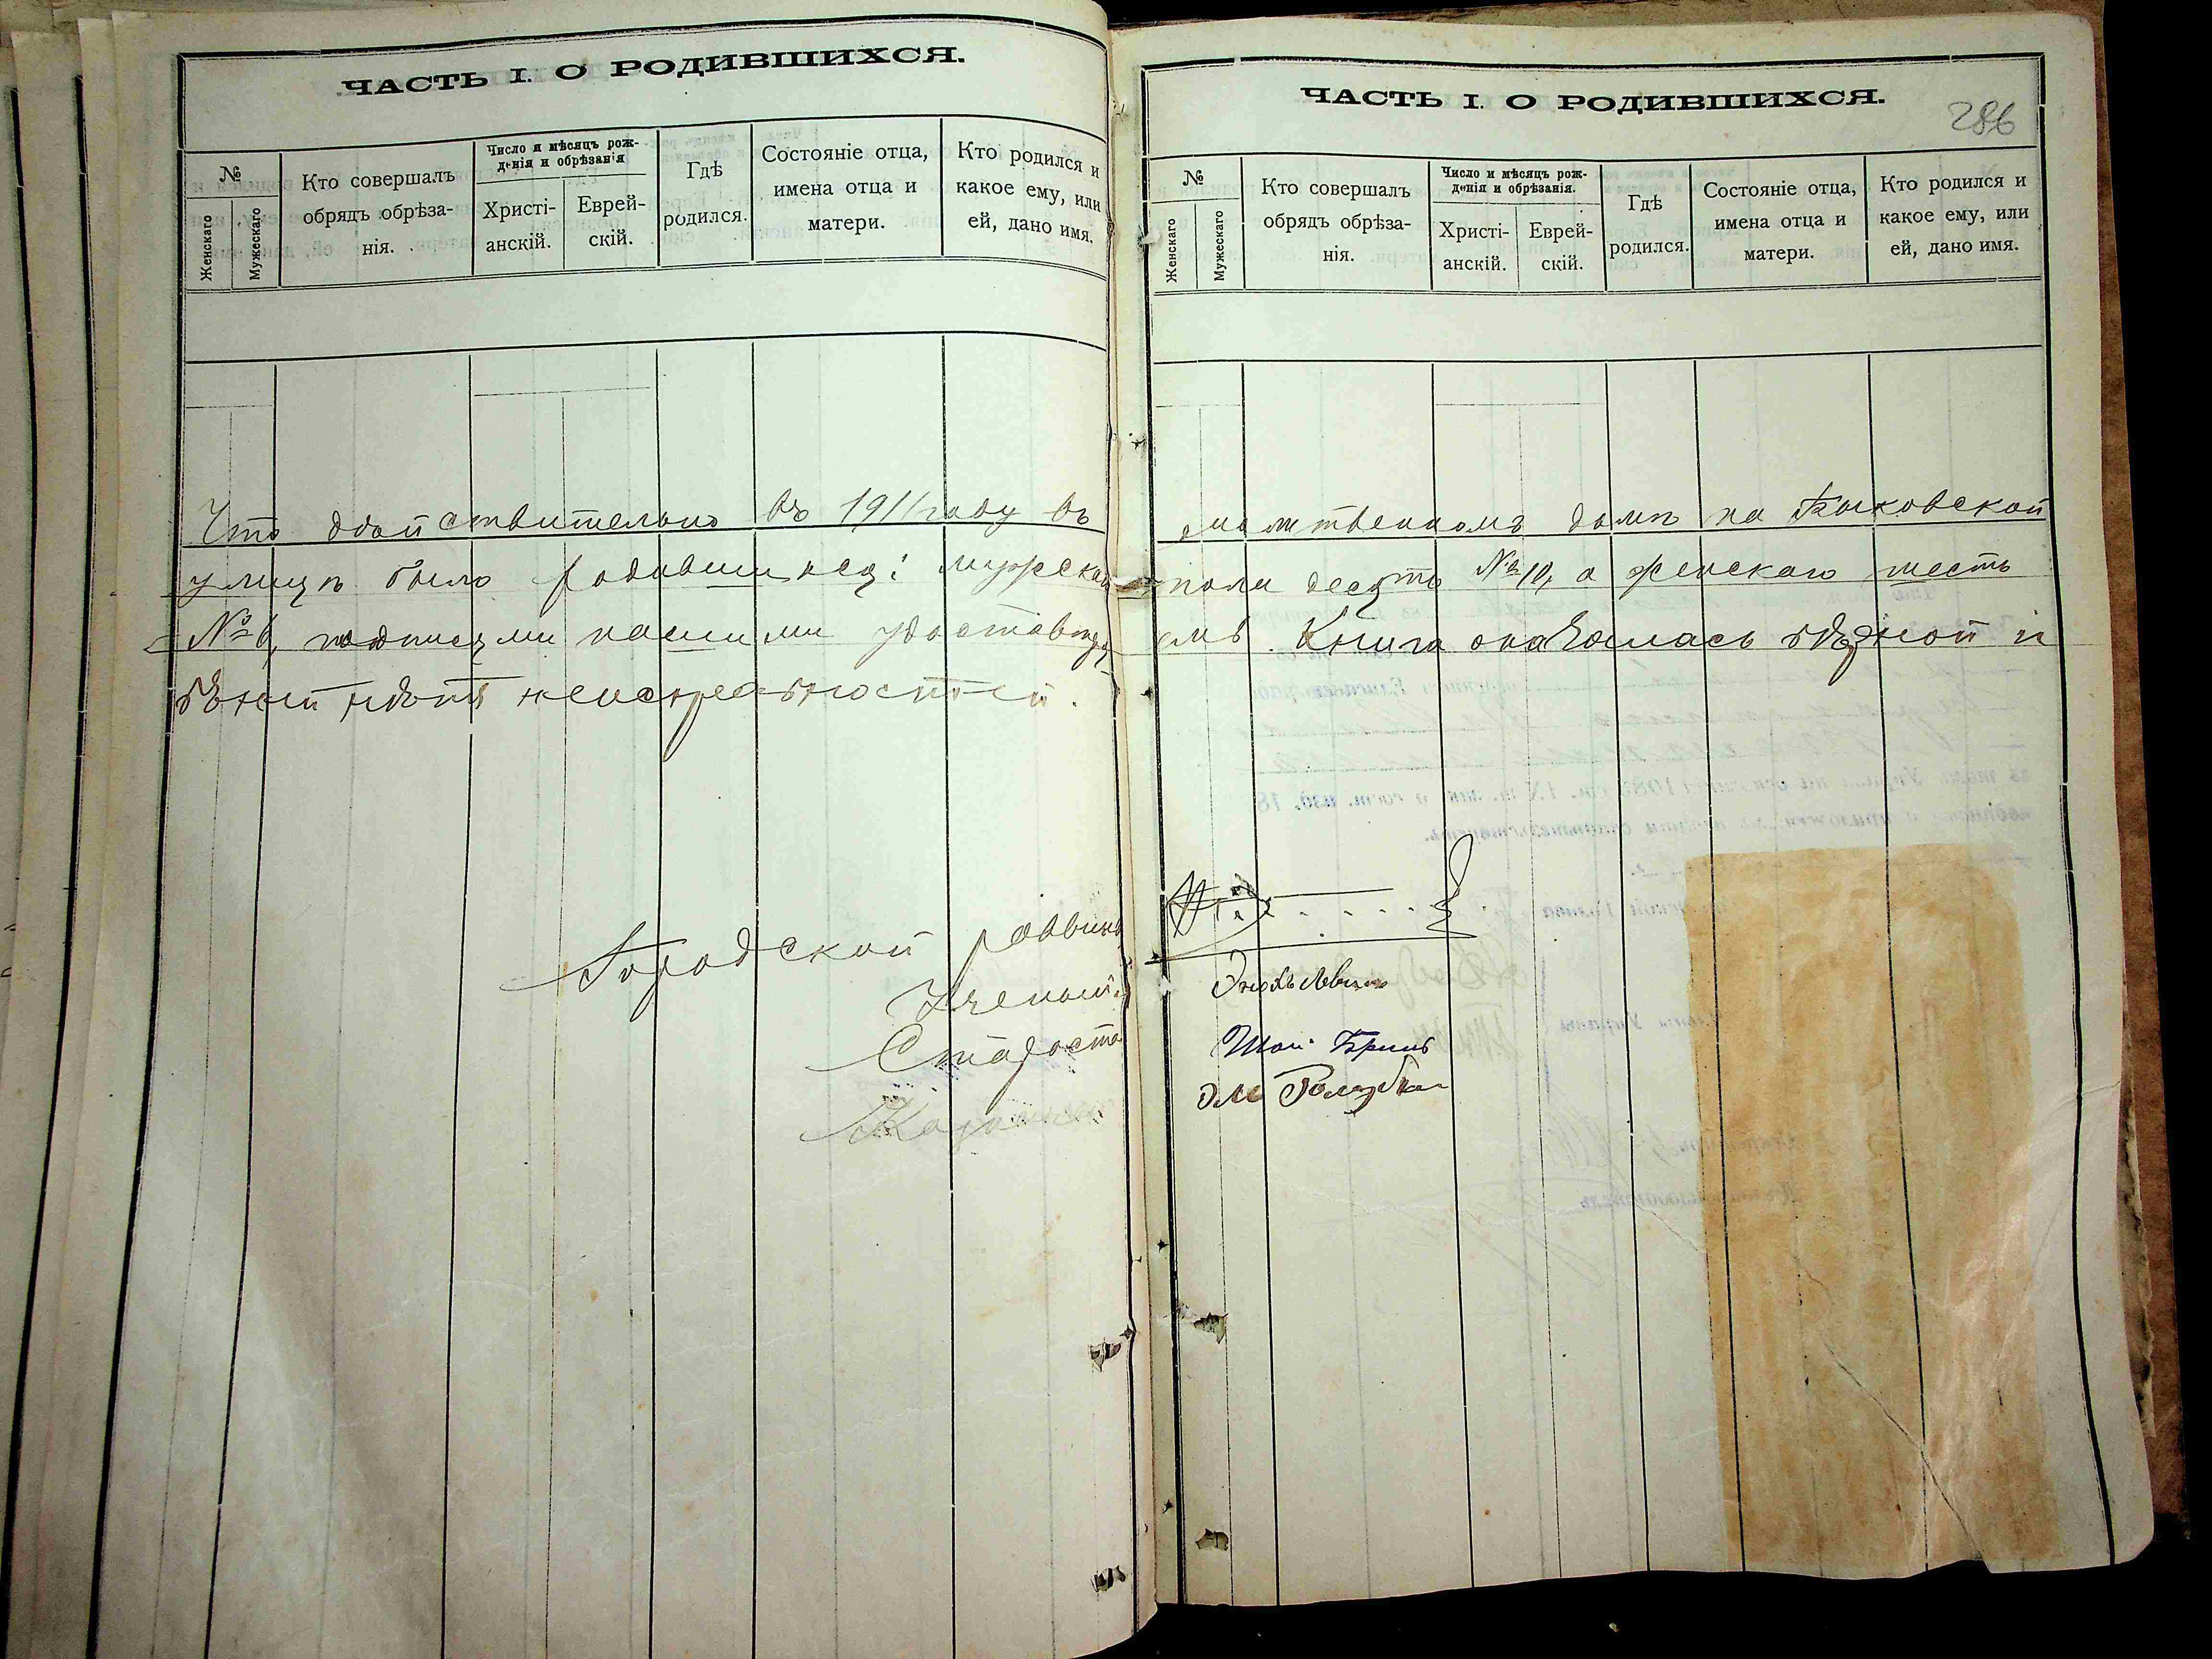 ЧАСТЬ I. О РОДИВШИХСЯ.
№
Женскаго
Мужескаго
Кто совершалъ
обрядъ обрѣза-
нія.
Число и мѣсяцъ рож-
денія и обрѣзанія
Христі-
анскій.
Еврей-
скій.
Гдѣ
родился.
Состояніе отца,
имена отца и
матери.
Кто родился и
какое ему, или
ей, дано имя.
ЧАСТЬ I. О РОДИВШИХСЯ.
286
№
Женскаго
Мужескаго
Кто совершалъ
обрядъ обрѣза-
нія.
Число и мѣсяцъ рож-
денія и обрѣзанія.
Христі-
анскій.
Еврей-
скій.
Гдѣ
родился.
Состояніе отца,
имена отца и
матери.
Кто родился и
какое ему, или
ей, дано имя.
Что дѣйствительно въ 1911 году въ молитвенномъ домѣ на Быковской
улицѣ было родившихся: мужскаго пола десять № 10, а женскаго шесть
№ 6, подписями нашими удостовѣряемъ. Книга оказалась вѣрной и
въ ней нѣтъ неисправностей.
Городской раввинъ
Ученый
Староста
Шая Бринъ
Казначей